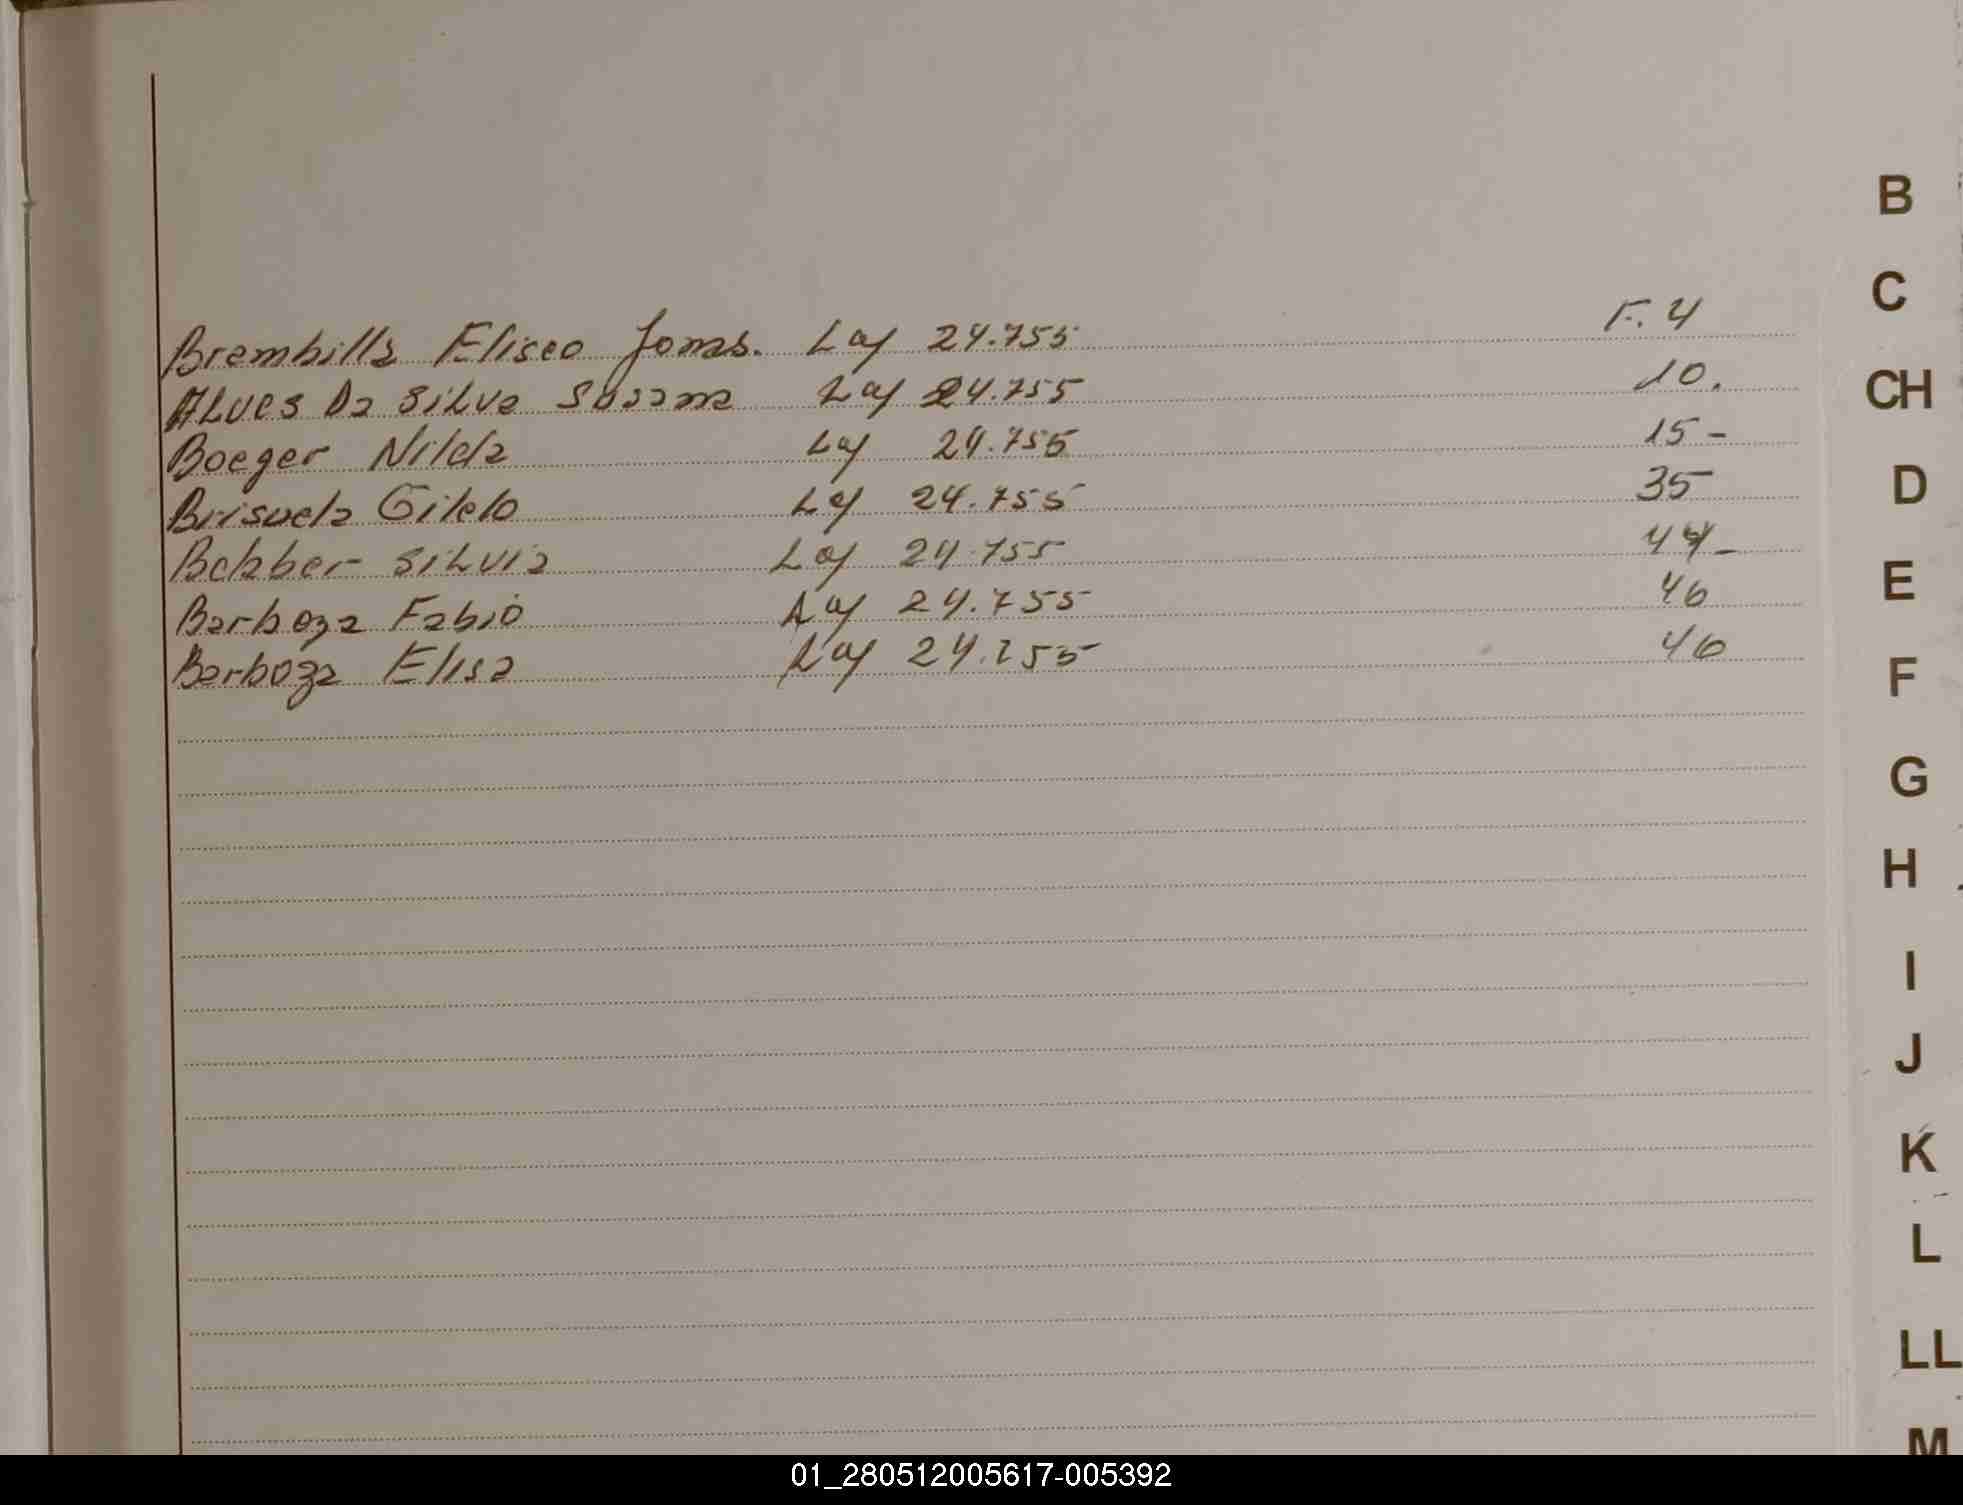 Brembilla Eliseo Jonas. Laj 24.755 F. 4
ALVES Da SiLva Susana Laj 24.755 10.
Boeger Nilda Laj 24.755 15 -
Brisuela Gildo Laj 24.755 35
Belaber SiLvia Laj 24.755 44 -
Barboza Fabio Laj 24.755 46
Barboza Elisa Laj 24.755 46
B
C
CH
D
E
F
G
H
I
J
K
L
LL
M
01_280512005617-005392